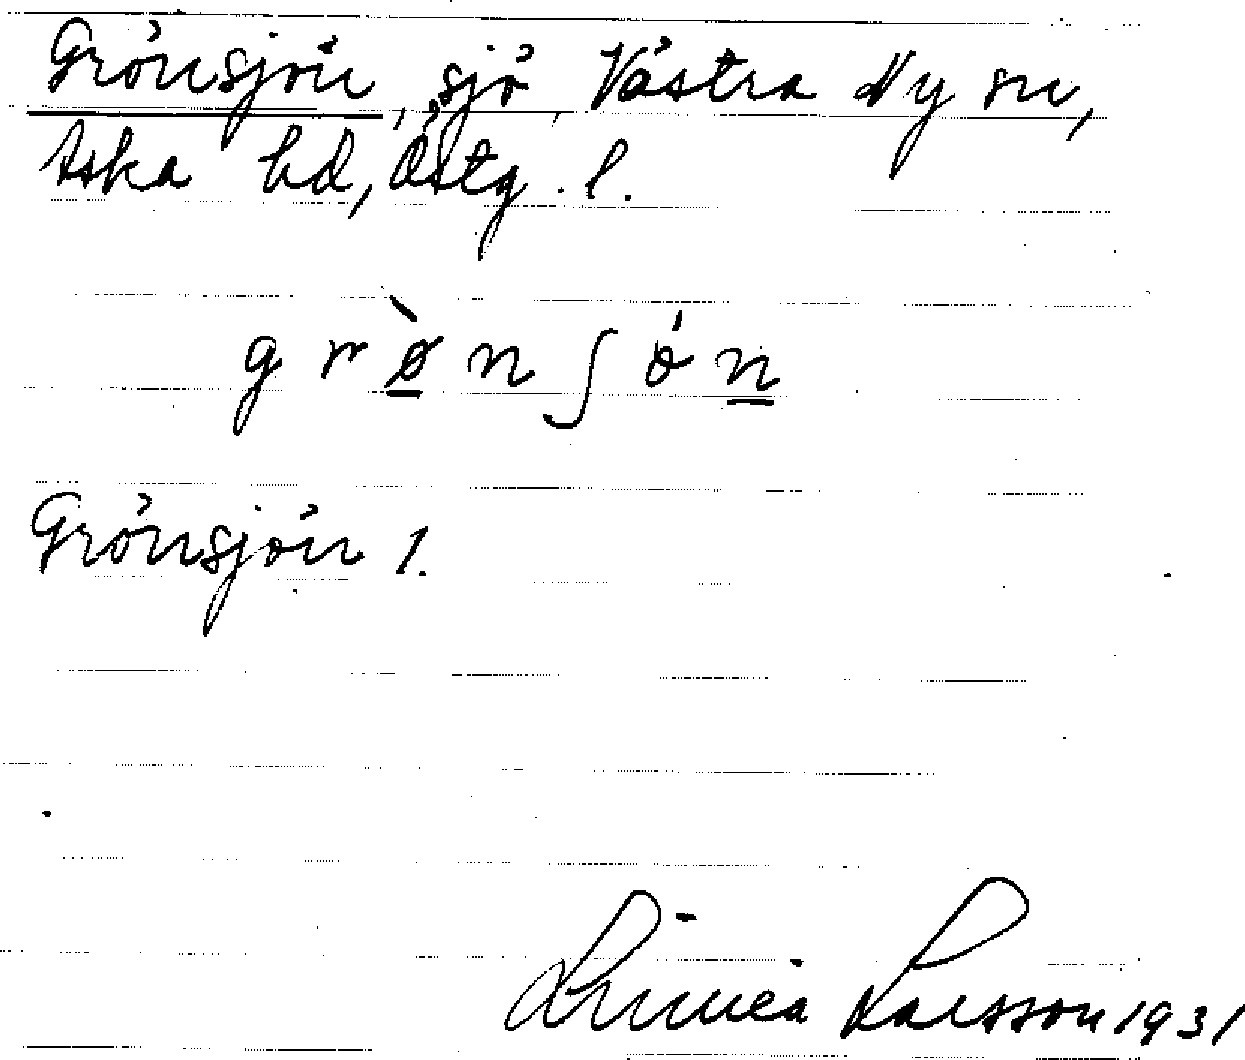 Grönsjön, sjö Västra Ny sn,
Aska hd, Östg. l.
grø̀nʃǿn
Grönsjön 1.
Linnea Larsson 1931